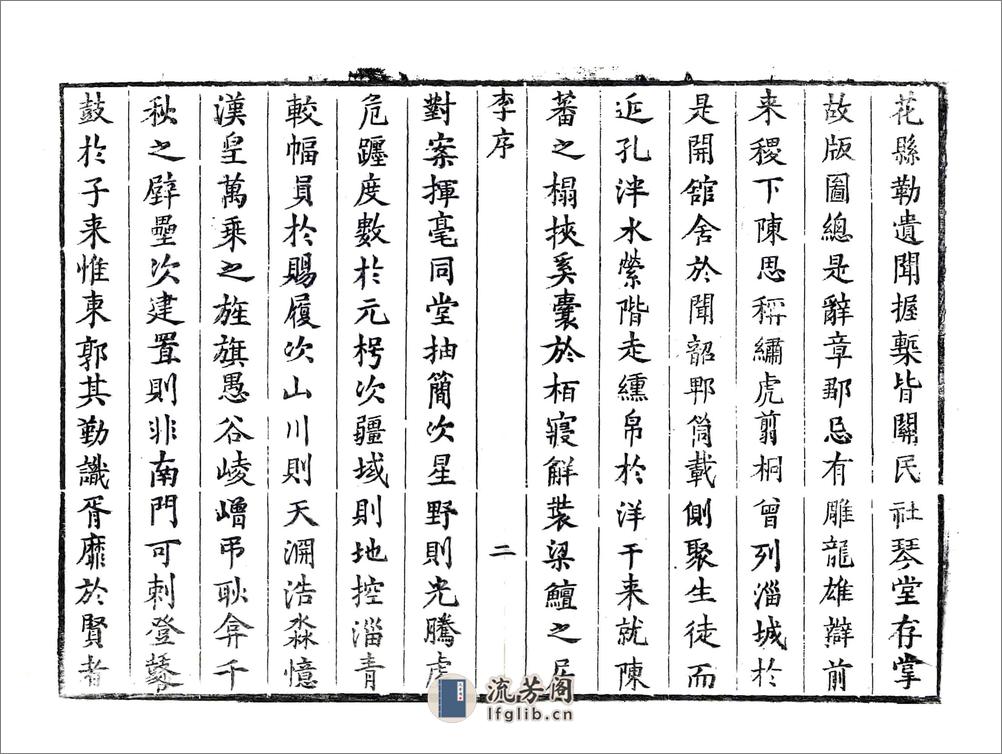 花縣勒遺聞握槧皆關民社琴堂存掌
故版圖總是辭章那忌有雕龍雄辯前
来稷下陳思稱繡虎剪桐曾列淄城於
是開舘舍於聞韶郫筒載側聚生徒而
近孔泮水縈階走纁帛於洋干来就陳
蕃之榻挾奚囊於栢寢觧裝梁鱣之居
李序
二
對案揮毫同堂抽簡次星野則光騰虚
危躔度數於元枵次疆域則地控淄青
較幅員於賜履次山川則天淵浩淼憶
漢皇萬乗之旌旗愚谷崚嶒弔耿弇千
秋之壁壘次建置則非南門可刺登鼛
鼓於子来惟東郭其勤譏胥靡於賢者
流芳阁
lfglib.cn